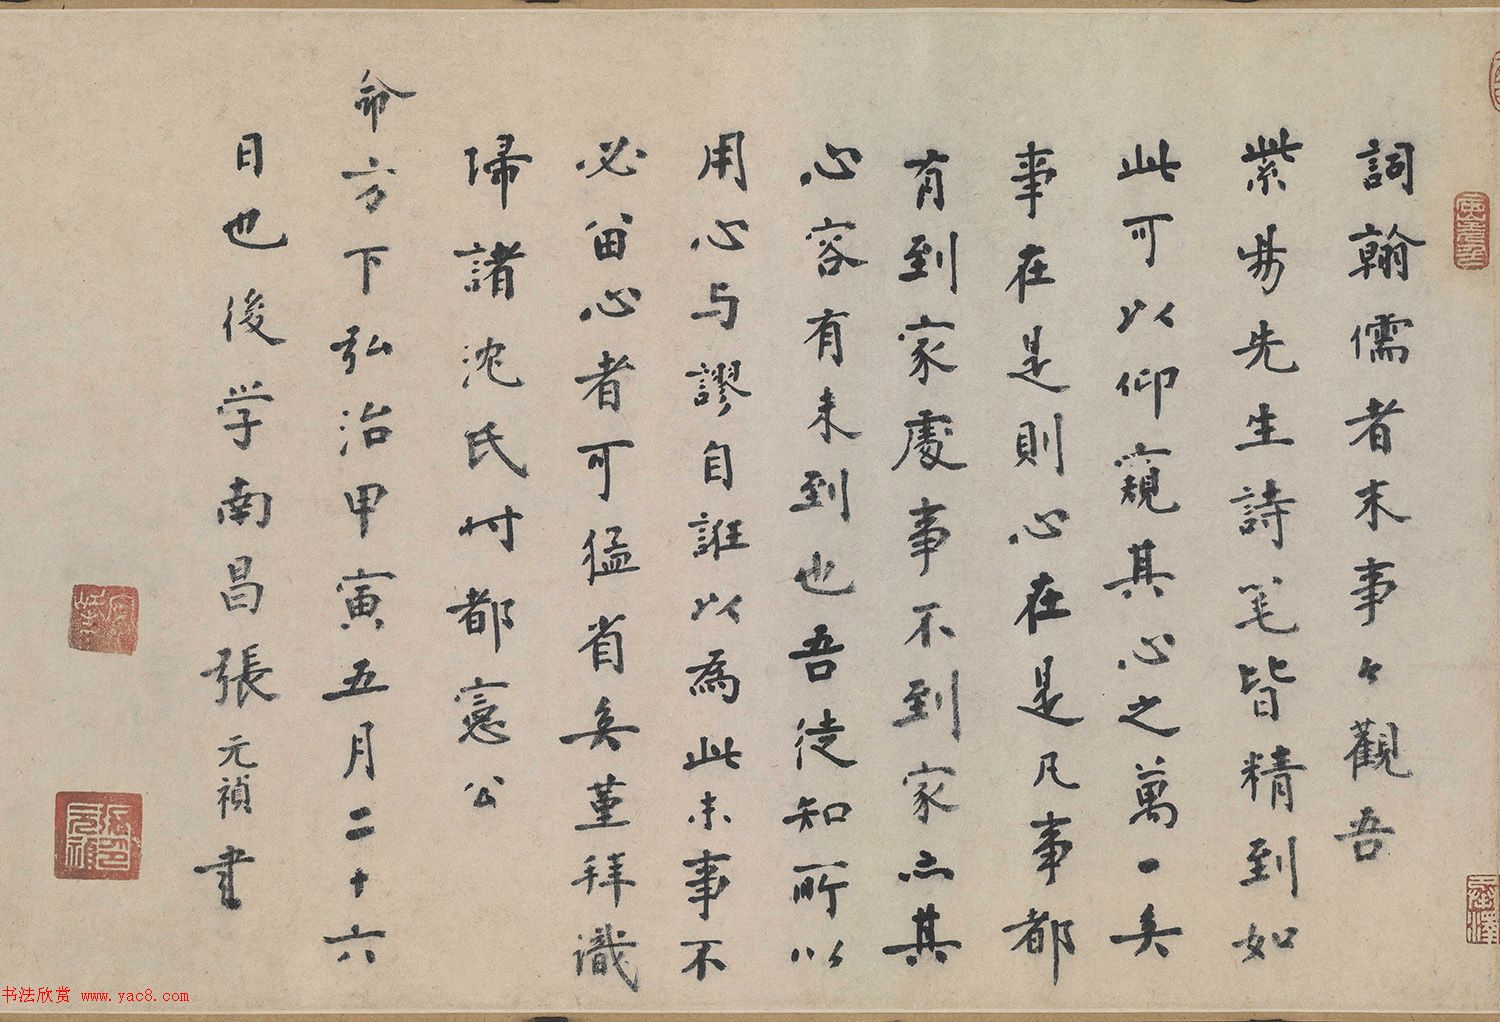 詞翰儒者末事々觀吾
紫昜先生詩笔皆精到如
此可以仰窺其心之萬一矣
事在是則心在是凡事都
有到家處事不到家亦其
心容有未到也吾徒知所以
用心与謬自誑以為此末事不
必留心者可猛省矣堇拜識
歸諸沈氏時都憲公
命方下弘治甲寅五月二十六
日也後学南昌張元禎書
书法欣赏 www.yac8.com